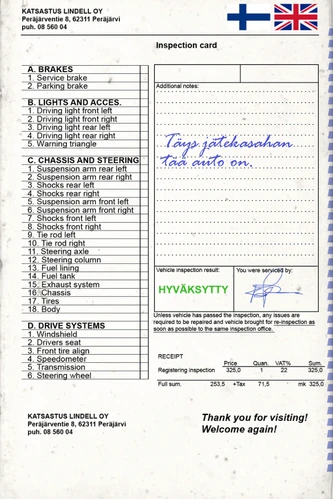 KATSASTUS LINDELL OY
Peräjärventie 8, 62311 Peräjärvi
puh. 08 560 04
Inspection card
A. BRAKES
1. Service brake
2. Parking brake
B. LIGHTS AND ACCES.
1. Driving light front left
2. Driving light front right
3. Driving light rear left
4. Driving light rear right
5. Warning triangle
C. CHASSIS AND STEERING
1. Suspension arm rear left
2. Suspension arm rear right
3. Shocks rear left
4. Shocks rear right
5. Suspension arm front left
6. Suspension arm front right
7. Shocks front left
8. Shocks front right
9. Tie rod left
10. Tie rod right
11. Steering axle
12. Steering column
13. Fuel lining
14. Fuel tank
15. Exhaust system
16. Chassis
17. Tires
18. Body
D. DRIVE SYSTEMS
1. Windshield
2. Drivers seat
3. Front tire align
4. Speedometer
5. Transmission
6. Steering wheel
Additional notes:
Täys jätekasahan
tää auto on.
Vehicle inspection result:
HYVÄKSYTTY
You were serviced by:
Unless vehicle has passed the inspection, any issues are
required to be repaired and vehicle brought for re-inspection as
soon as possible to the same inspection office.
RECEIPT
Price Quan. VAT% Sum
Registering inspection 325,0 1 22 325,0
Full sum. 253,5 +Tax 71,5 mk 325,0
KATSASTUS LINDELL OY
Peräjärventie 8, 62311 Peräjärvi
puh. 08 560 04
Thank you for visiting!
Welcome again!